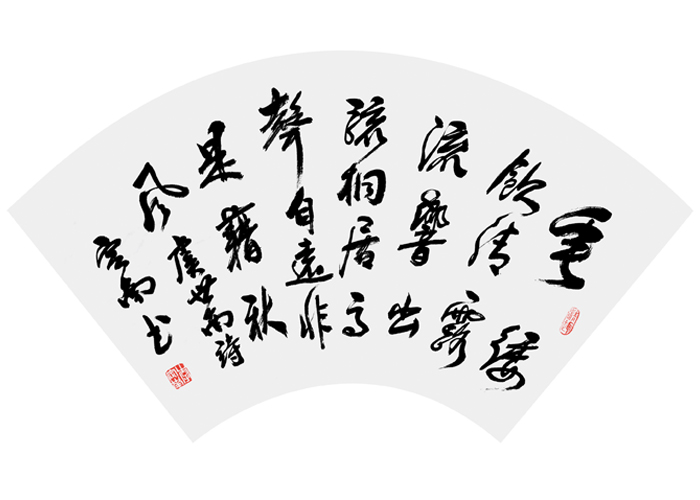 垂緌
飲清露
流響出
疏桐居高
聲自遠非
是藉秋
風虞世南詩
南书